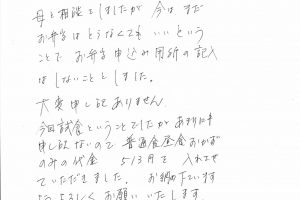 母と相談をしましたが 今はまだ
お弁当はとらなくても いいという
ことで お弁当申込み用紙の記入
はしないことにしました。
大変申し訳ありません。
今回試食ということでしたが あまりにも
申し訳ないので 普通食昼食おかず
のみの代金 513円を 入れさせ
ていただきました。 お納め下さいます
よう よろしくお願いいたします。